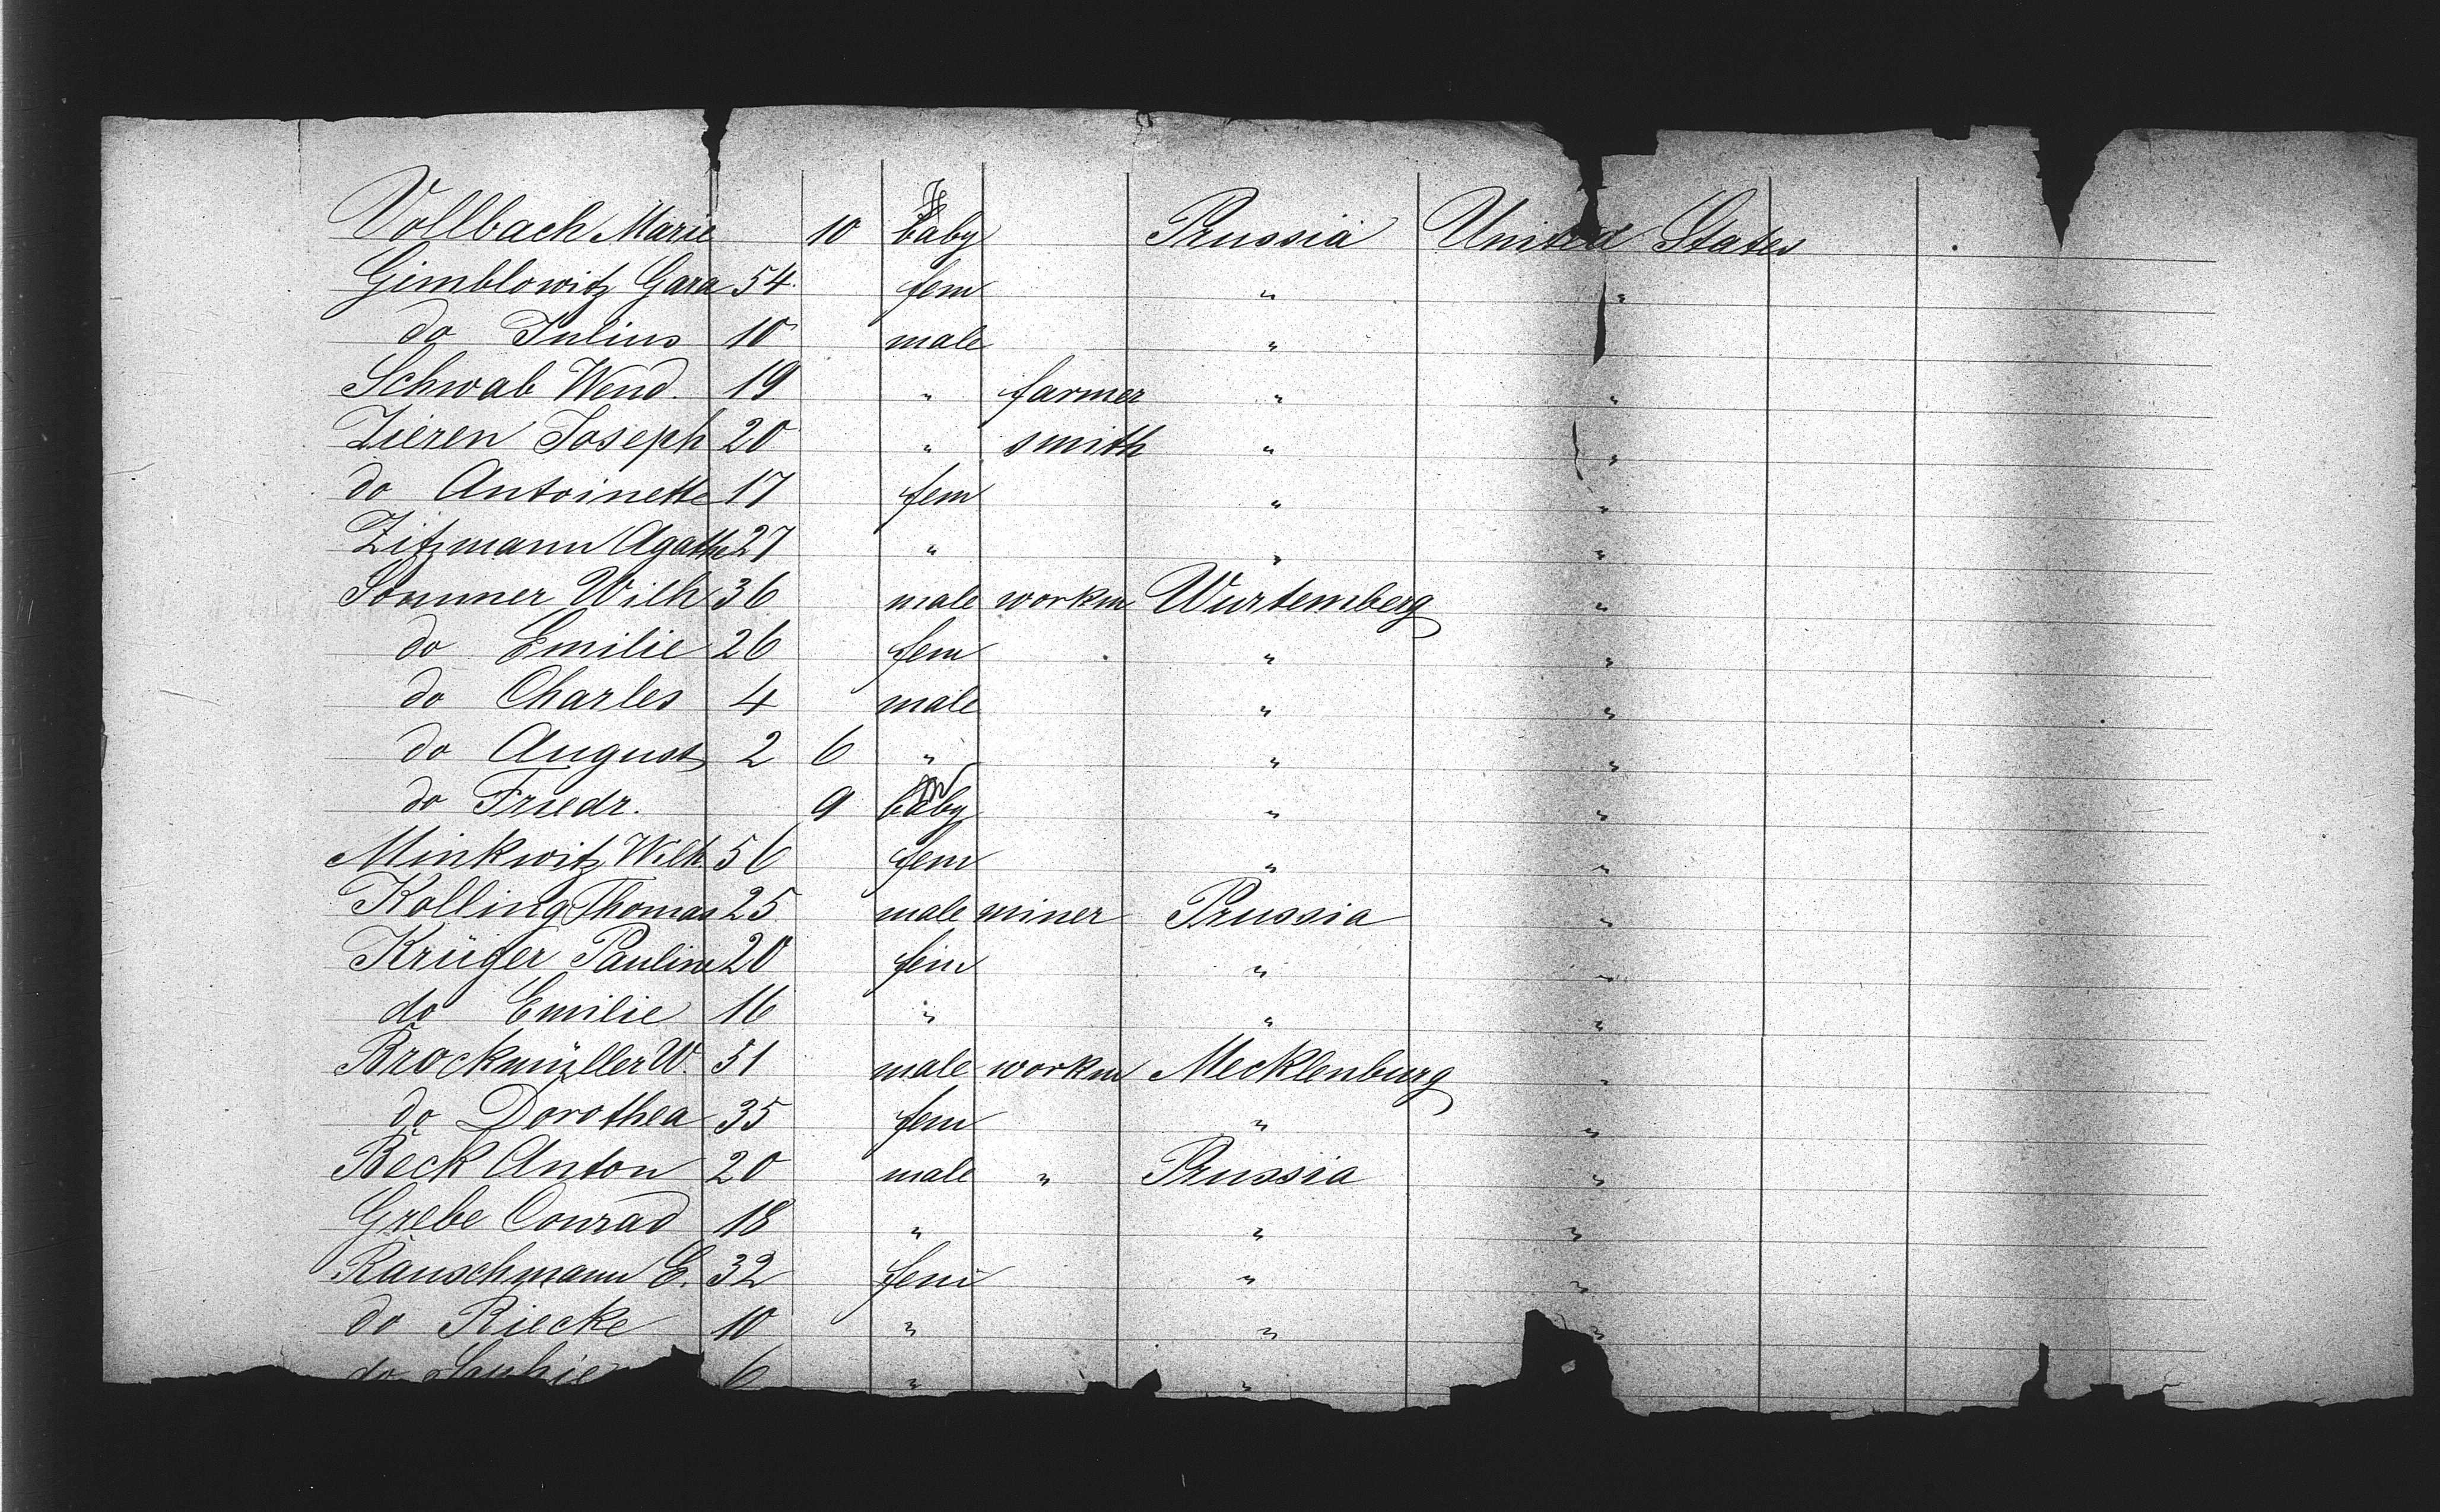 Vollbach Marie 10 baby Prussia United States
Gimblowitz Gara 54 fem " "
do Julius 10 male "
Schwab Wend. 19 " farmer " "
Zieren Joseph 20 " smith " "
do Antoinette 17 fem " "
Zitzmann Agathe 27 " " "
Sommer Wilh 36 male workm Wurtemberg "
do Emilie 26 fem " "
do Charles 4 male " "
do August 2 6 " " "
do Friedr. 9 baby " "
Minkwitz Wilh. 56 fem " "
Kolling Thomas 25 male miner Prussia "
Krüger Pauline 20 fem " "
do Emilie 16 " " "
Brockmüller W. 51 male workm Mecklenburg "
do Dorothea 35 fem " "
Beck Anton 20 male " Prussia "
Grebe Conrad 18 " " "
Rauschmann E. 32 fem " "
do Riecke 10 " " "
do Sophie 6 " "